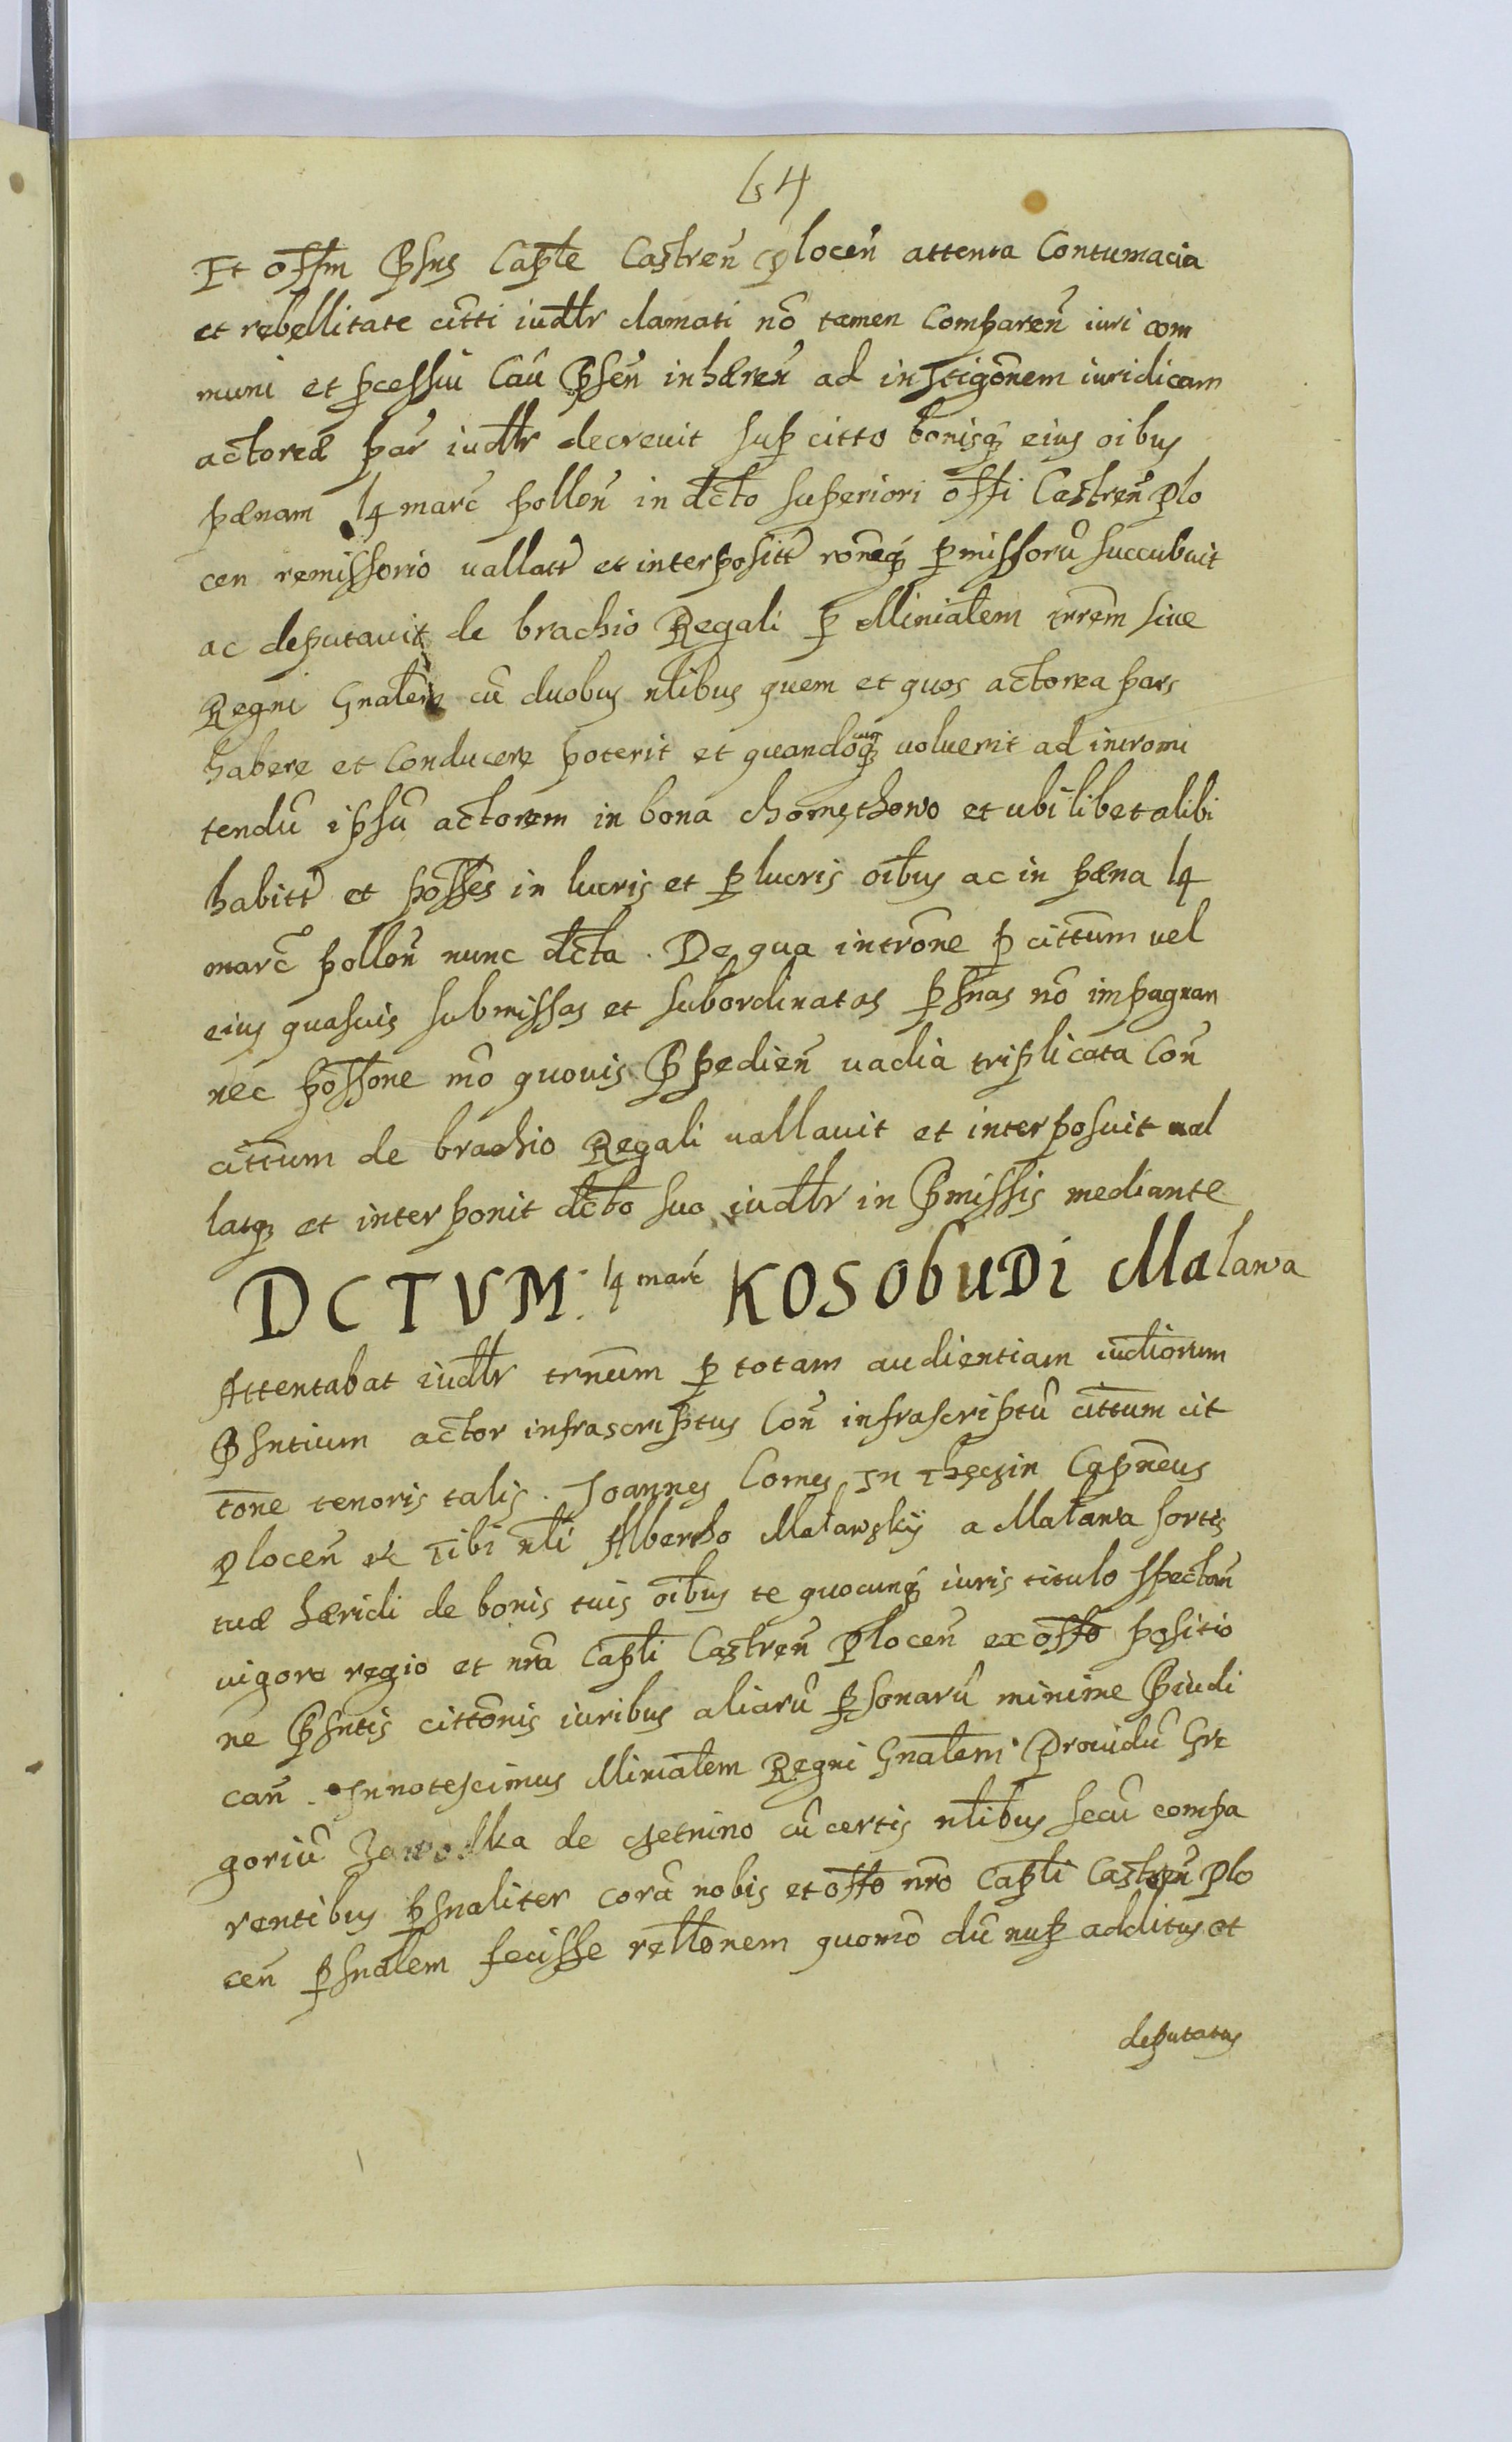 154
Et offm Pñs Capte Castreñ Ploceñ attenta Contumacia
et rebellitate citti iudtr clamati nõ tamen Compareñ iuri com
muni et pcessui Cau Pñseñ inhæreñ ad instigõnem iuridicam
actoreæ par iudtr decrevit sup citto bonisq eius oibus
pænam 14 marc polloñ in dcto superiori offi Castreñ Plo
cen remissorio vallatt et interpositt roneq pmissorũ succubuit
ac deputavit de brachio Regali p Minialem trrem sive
Regni Gnalem cũ duobus nlibus quem et quos actorea pars
habere et Conducere poterit et quandocunq voluerit ad intromi
tendũ ipsũ actorem in bona chomethowo et ubi libet alibi
habitt et posses in lucris et p lucris oibus ac in pæna 14
marc polloñ nunc dcta. De qua intrõne p cittum vel
eius quasuis submissas et subordinatas psnas nõ impagnan
nec possone mõ quovis Ppedieñ vadia triplicata Coñ
cittum de brachio Regali vallavit et interposuit val
latq et interponit dcto suo iudtr in Pmissis mediante
DCTVM. 14 marc KOSObUDI Malawa
Attentabat iudtr trnum p totam audientiam iudtiorum
Psntium actor infrascriptus Coñ infrascriptũ cittum cit
tone tenoris talis. Joannes Comes In Theczin Capneus
Ploceñ etc Tibi nli Alberto Malawsky a Malawa sortis
tuæ hæridi de bonis tuis oibus te quocunq iuris titulo spectañ
vigore regio et nra Capti Castreñ Ploceñ ex offo positio
ne Psntis cittonis iuribus aliarũ psonarũ minime Piudi
cañ. Innotescimus Minialem Regni Gnalem Providũ Gre
goriũ Zawodka de czetnino cũ certis nlibus secũ compa
rentibus psnaliter corã nobis et offo nro Capti Castreñ Plo
ceñ psnalem fecisse rellonem quomõ dũ nup additus et
deputatus